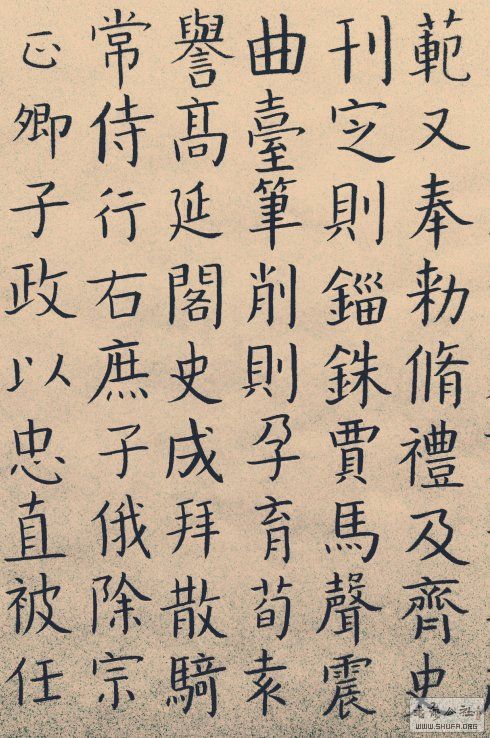 範又奉勑脩禮及齊史
刊㝎則錙銖賈馬聲震
曲臺筆削則孕育荀袁
譽髙延閣史成拜散騎
常侍行右庶子俄除宗
正卿子政以忠直被任
WWW.SHUFA.ORG